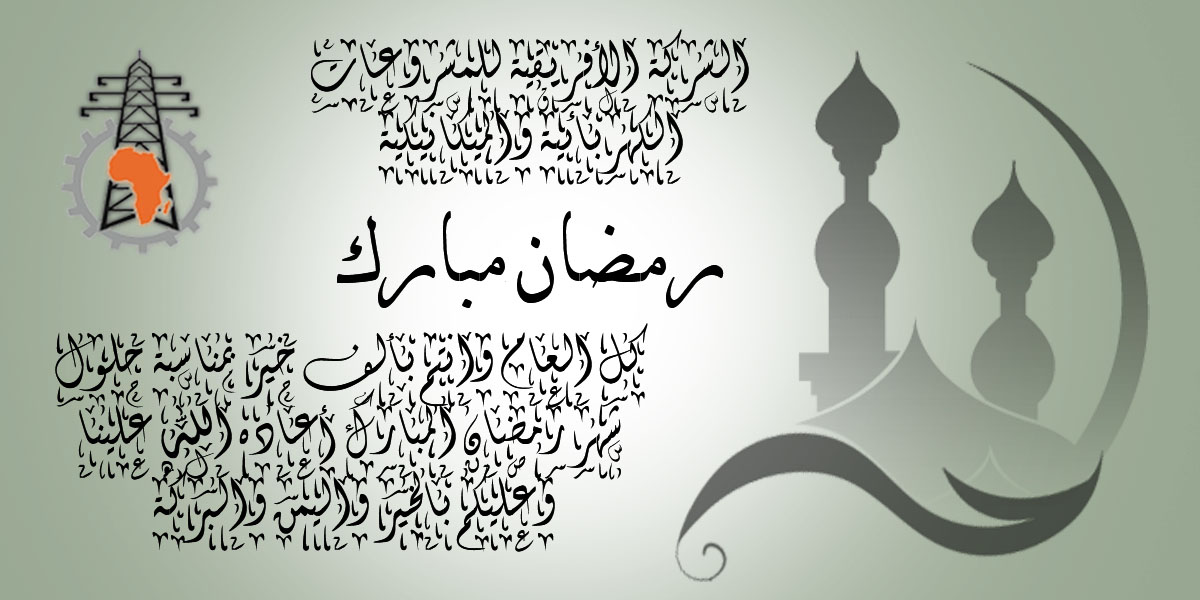 الشركة الأفريقية للمشروعات
الكهربائية والميكانيكية
رمضان مبارك
كل العام وانتم بألف خير بمناسبة حلول
شهر رمضان المبارك أعاده الله علينا
وعليكم بالخير واليمن والبركة